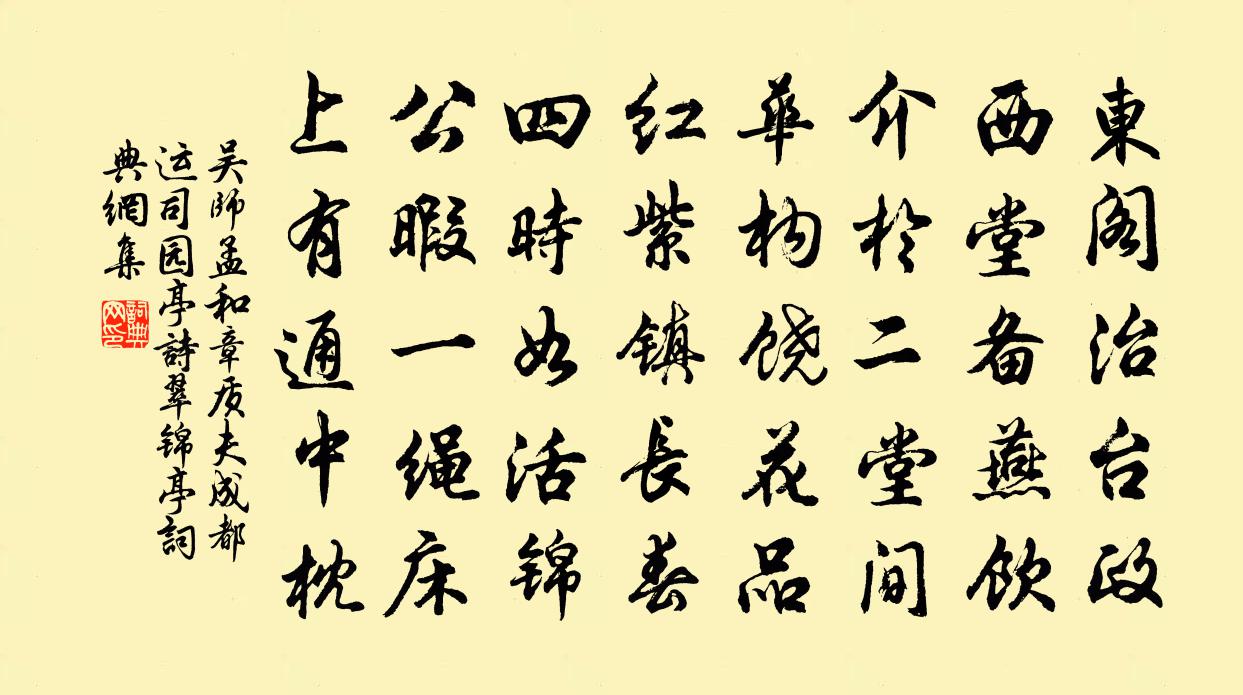 東阁治台政
西堂备燕飲
介於二堂间
華构饶花品
红紫镇長春
四時如活锦
公暇一绳床
上有通中枕
吴師孟和章质夫成都
运司园亭詩翠锦亭詞
典網集
詞典网印